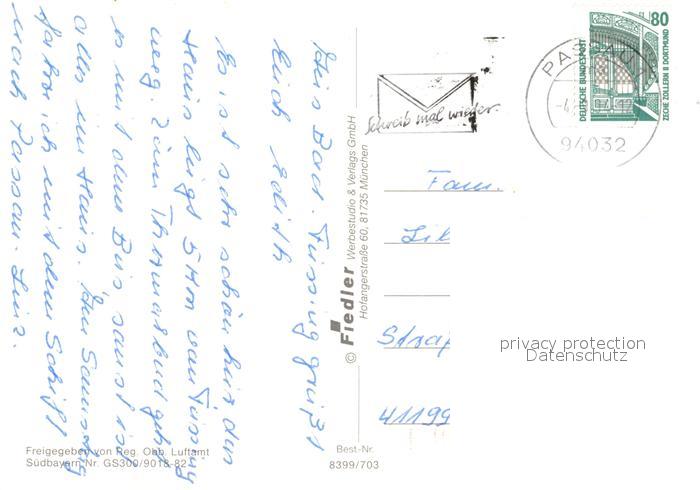 Aus Bad. Füssing grüßt
Euch Edith
Es ist sehr schön hier, den
Haus liegt 5 Km von Füssing
weg. Zum Thermalbad geht
es mit dem Bus, sonst ist
alles im Haus. Am Samstag
fahre ich mit dem Schiff
nach Passau. Linz.
Freigegeben von Reg. Obb. Luftamt
Südbayern Nr. GS300/9018-82
© Fiedler Werbestudio & Verlags GmbH
Hofangerstraße 60, 81735 München
Best-Nr.
8399/703
Schreib mal wieder.
PASSAU
94032
80
DEUTSCHE BUNDESPOST
ZECHE ZOLLERN II DORTMUND
Fam.
Lil
Straß
41199
privacy protection
Datenschutz